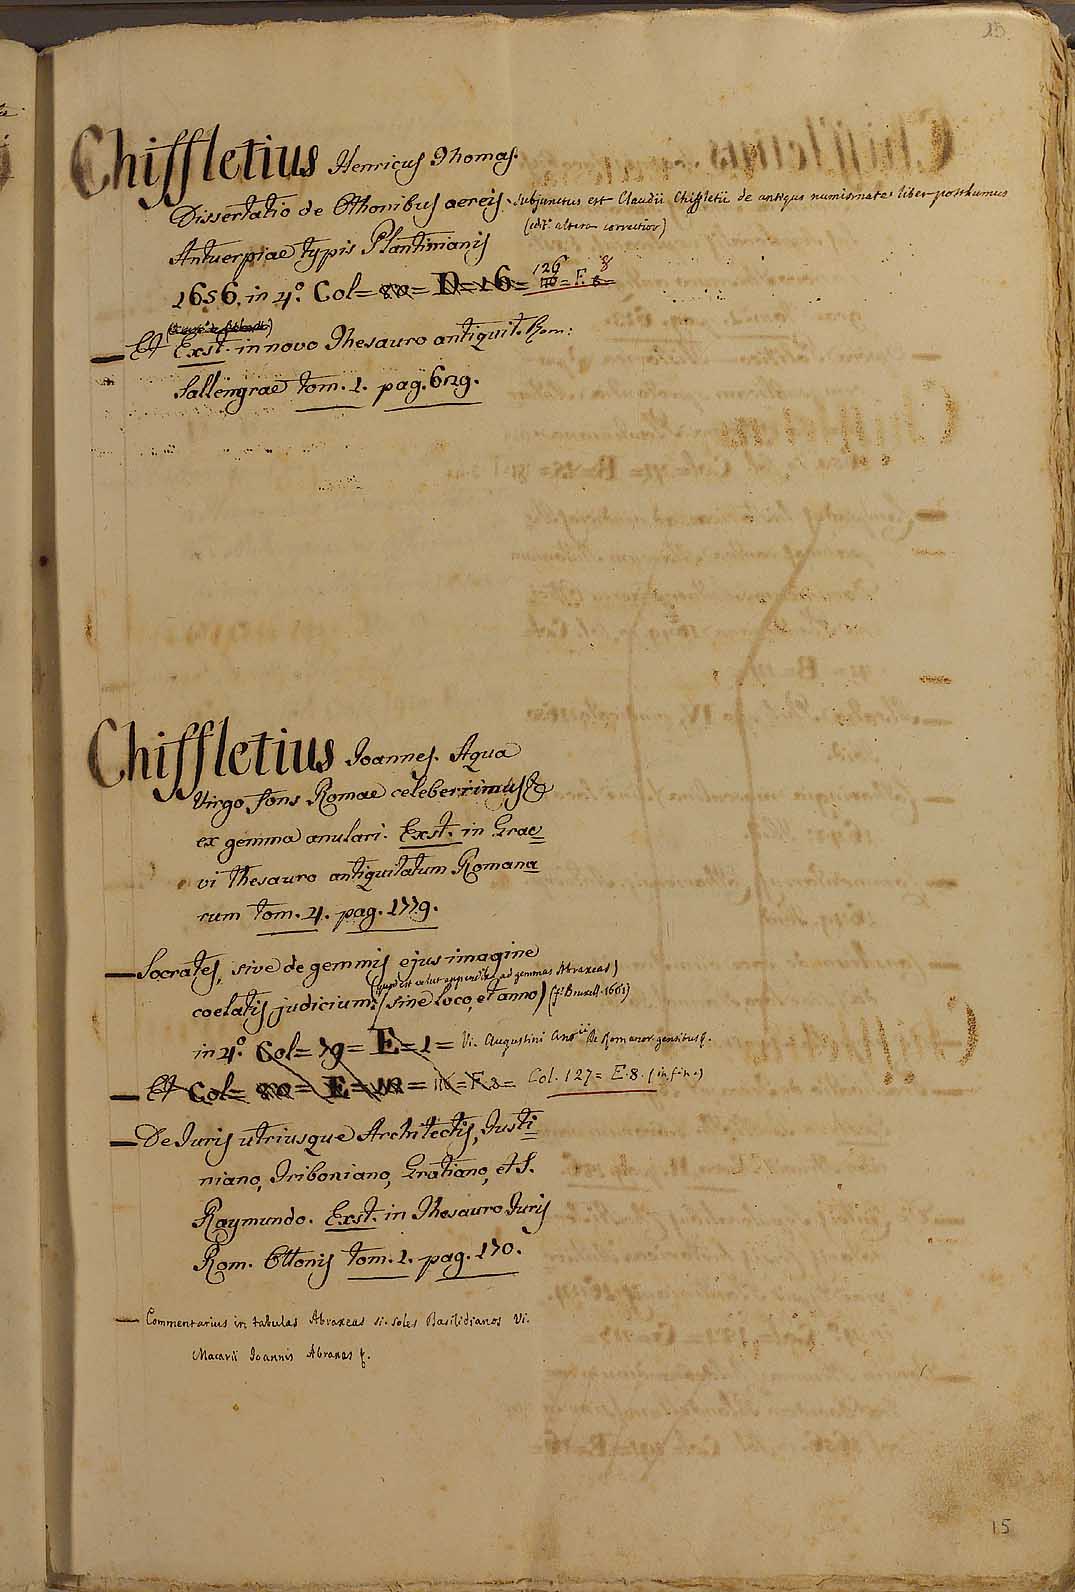 15.
Chiffletius Henricus Thomas.
Dissertatio de Othonibus aereis. Subjunctus est Claudii Chiffletii de antiquo numismate liber posthumus
(edit.° altera correctior)
Antuerpiae typis Plantinianis
1656. in 4.° Col= = D=16= 126 = F. 8
— Et Exst. in novo Thesauro antiquit. Rom:
Sallengrae tom. 1. pag. 629.
Chiffletius Joannes. Aqua
Virgo fons Romae celeberrimus &
ex gemma anulari. Exst. in Grae=
vi Thesauro antiquitatum Romana
rum tom. 4. pag. 1779.
— Socrates, sive de gemmis ejus imagine
(quod est velut appendix ad gemmas Abraxeas)
coelatis judicium. (sine loco, et anno) (f.° Bruxell. 1661)
in 4.° Col= 79= E=1= Vi. Augustini Ant.ii De Romanor. gentibus &.
— Et Col= = E= = 116=F.8= Col. 127= E.8. (in fin.)
— De Juris utriusque Architectis, Justi=
niano, Triboniano, Gratiano, et S.
Raymundo. Exst. in Thesauro Juris
Rom. Ottonis tom. 1. pag. 170.
— Commentarius in tabulas Abraxeas si. soles Basilidianos Vi.
Macarii Joannis Abraxas &.
15